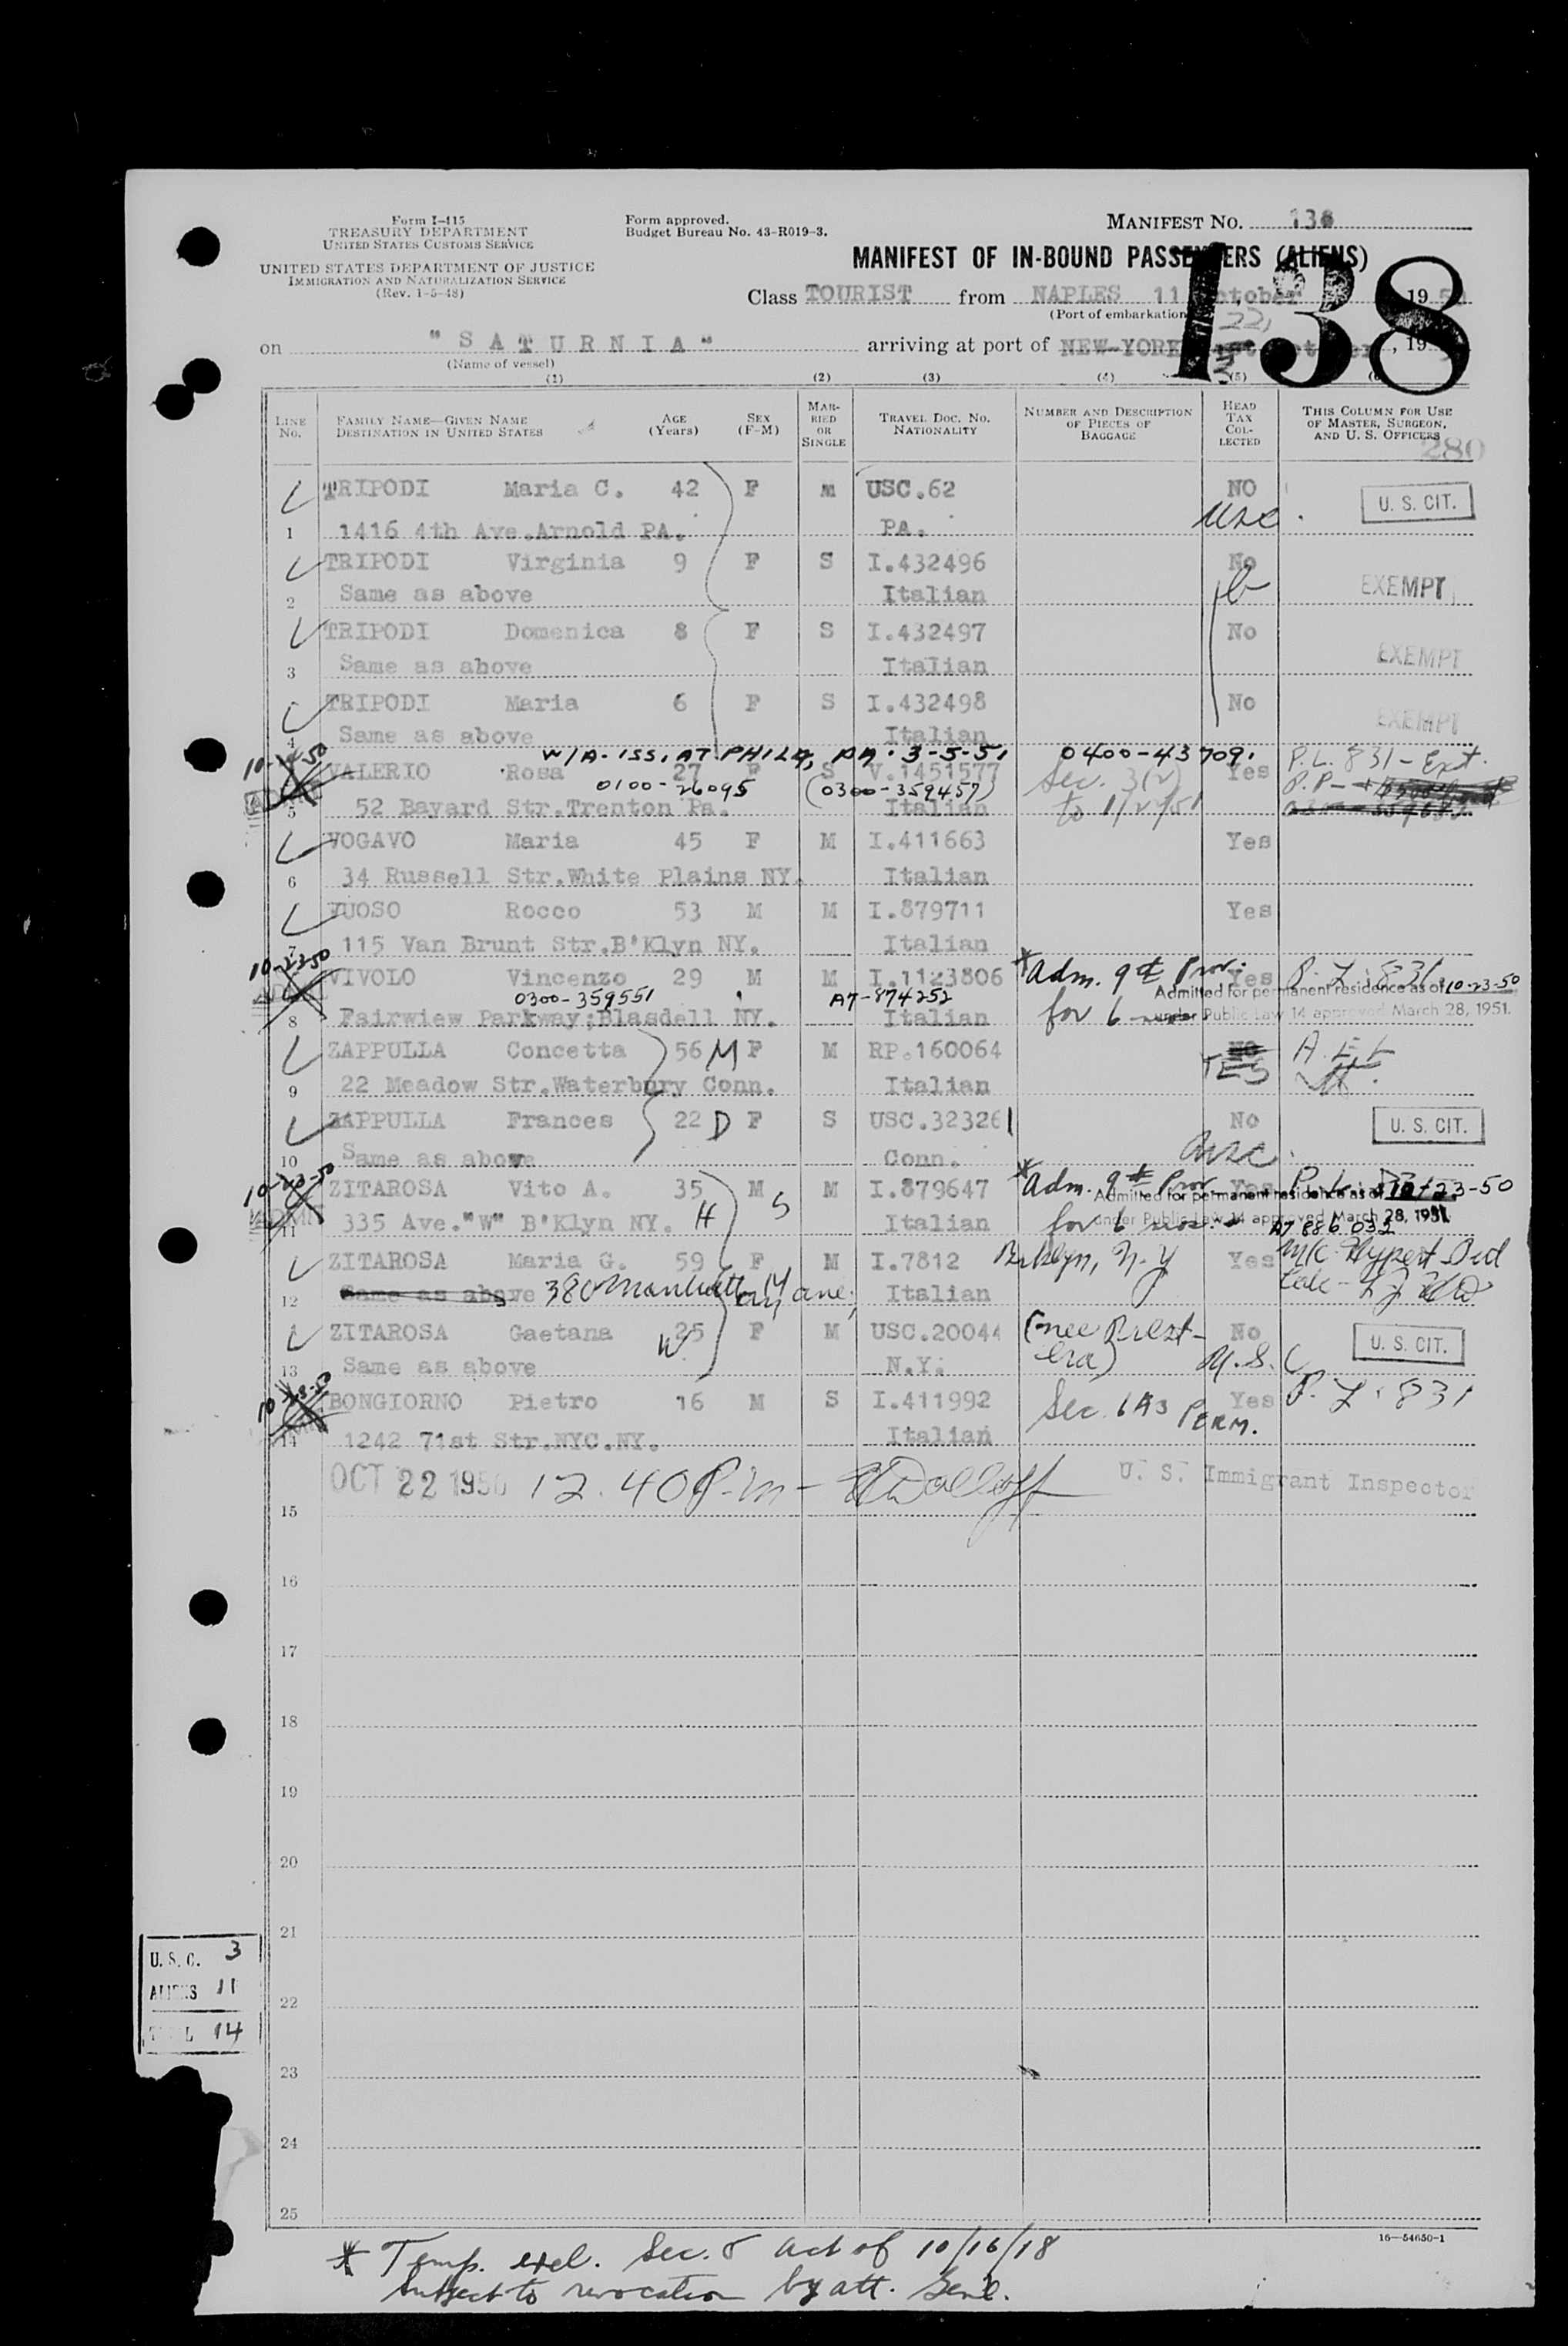 Form I-415
TREASURY DEPARTMENT
UNITED STATES CUSTOMS SERVICE
UNITED STATES DEPARTMENT OF JUSTICE
IMMIGRATION AND NATURALIZATION SERVICE
(Rev. 1-5-48)
Form approved.
Budget Bureau No. 43-R019-3.
MANIFEST NO. 138
MANIFEST OF IN-BOUND PASSENGERS (ALIENS)
138
Class TOURIST from NAPLES 11 October, 1950
(Port of embarkation)
on "SATURNIA" arriving at port of NEW-YORK 22, 19
(Name of vessel)
(1) (2) (3) (4) (5) (6)
LINE No. FAMILY NAME—GIVEN NAME DESTINATION IN UNITED STATES AGE (Years) SEX (F-M) MARRIED OR SINGLE TRAVEL DOC. NO. NATIONALITY NUMBER AND DESCRIPTION OF PIECES OF BAGGAGE HEAD TAX COLLECTED THIS COLUMN FOR USE OF MASTER, SURGEON, AND U. S. OFFICERS
280
TRIPODI Maria C. 42 F M USC.62 NO U. S. CIT.
1 1416 4th Ave.Arnold PA. PA. usc.
TRIPODI Virginia 9 F S I.432496 No
2 Same as above Italian EXEMPT
TRIPODI Domenica 8 F S I.432497 No
3 Same as above Italian EXEMPT
TRIPODI Maria 6 F S I.432498 No
4 Same as above Italian EXEMPT
W/A. ISS. AT PHILA, PA. 3-5-51 0400-43709. P.L. 831-Ext.
VALERIO Rosa 27 F S V.1451577 Sec. 3(2) Yes P.P-
0100-26095 (0300-359457)
5 52 Bayard Str.Trenton Pa. Italian to 1/21/51
VOGAVO Maria 45 F M I.411663 Yes
6 34 Russell Str.White Plains NY. Italian
VUOSO Rocco 53 M M I.879711 Yes
7 115 Van Brunt Str.B'Klyn NY. Italian
10-23-50 VIVOLO Vincenzo 29 M M I.1123806 *Adm. 9th Prov. Yes P.L. 831
0300-359551 A7-874252 Admitted for permanent residence as of 10-23-50
8 Fairwiew Parkway;Blasdell NY. Italian for 6 under Public Law 14 approved March 28, 1951.
ZAPPULLA Concetta 56 M F M RP.160064 NO A.E.L
9 22 Meadow Str.Waterbury Conn. Italian YES
ZAPPULLA Frances 22 D F S USC.323261 No U. S. CIT.
10 Same as above Conn. usc.
10-23-50 ZITAROSA Vito A. 35 M S M I.879647 *Adm. 9th Prov. Yes P.L.
Admitted for permanent residence as of 10-23-50
11 335 Ave."W" B'Klyn NY. H Italian for 6 mos. under Public Law 14 approved March 28, 1951.
A7 886 032
ZITAROSA Maria G. 59 F M I.7812 Brklyn, N.Y Yes
12 Same as above 380 Manhattan ave. Italian
ZITAROSA Gaetana W 25 F M USC.20044 No U. S. CIT.
13 Same as above N.Y. U.S.C
BONGIORNO Pietro 16 M S I.411992 Sec. 6A3 PERM. Yes P.L. 831
14 1242 71st Str.NYC.NY. Italian
OCT 22 1950 12.40 P.m- U. S. Immigrant Inspector
15
16
17
18
19
20
21
U. S. C. 3
ALIENS 11
22
TOTAL 14
23
24
25
16—54650-1
* Temp. excl. Sec. 8 act of 10/16/18
Subject to revocation by att. Genl.